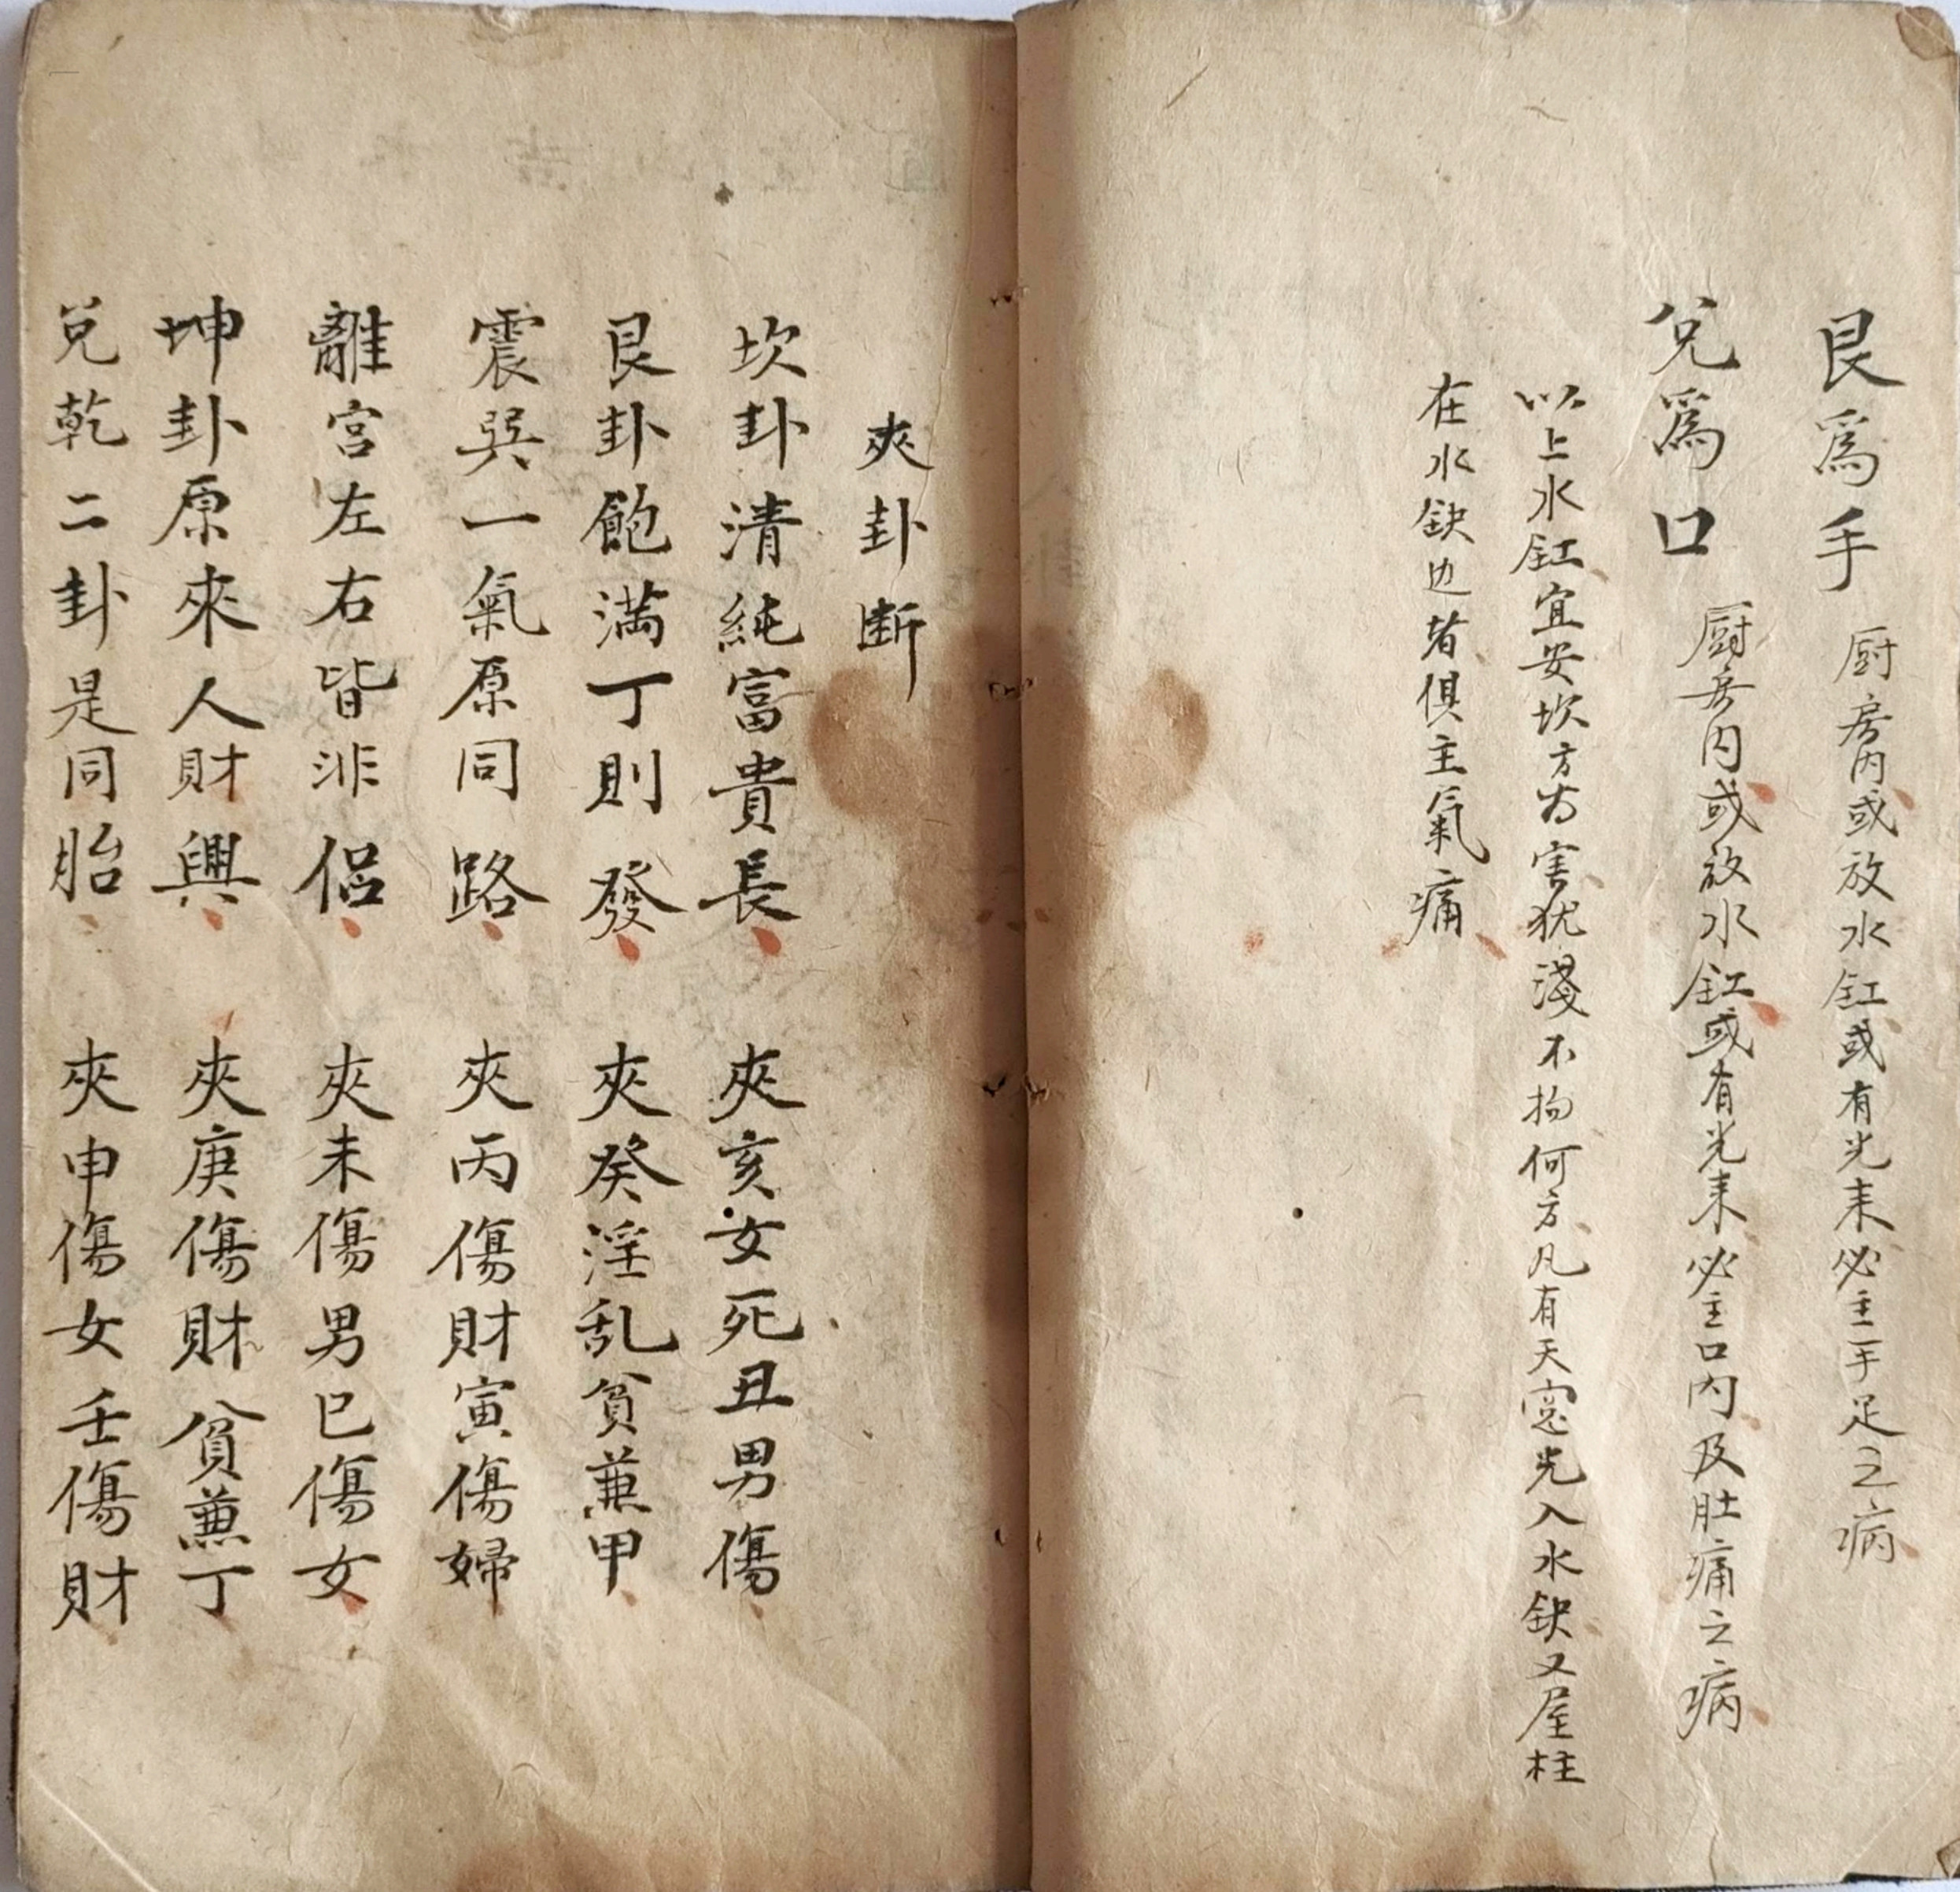 艮爲手 厨房内或放水缸或有光来必主手足之病
兌爲口 厨房内或放水缸或有光来必主口内及肚痛之病
以上水缸宜安坎方为害犹淺不拘何方凡有天窓光入水缺又屋柱
在水缺边者俱主氣痛
夾卦断
坎卦清純富貴長 夾亥女死丑男傷
艮卦飽滿丁則發 夾癸淫乱貧兼甲
震巽一氣原同路 夾丙傷財寅傷婦
離宮左右皆非侶 夾未傷男巳傷女
坤卦原來人財興 夾庚傷財貧兼丁
兌乾二卦是同胎 夾申傷女壬傷財